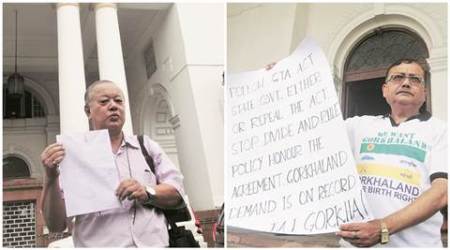 FOLLOW GTA ACT
STATE GOVT. EITHER
OR REPEAL THE ACT
STOP DIVIDE AND RULE
POLICY HONOUR THE
AGREEMENT. GORKHALAND
DEMAND IS ON RECORD
JAI GORKHA!
WE WANT
GORKHALAND
GORKHALAND
R BIRTH RIGHT